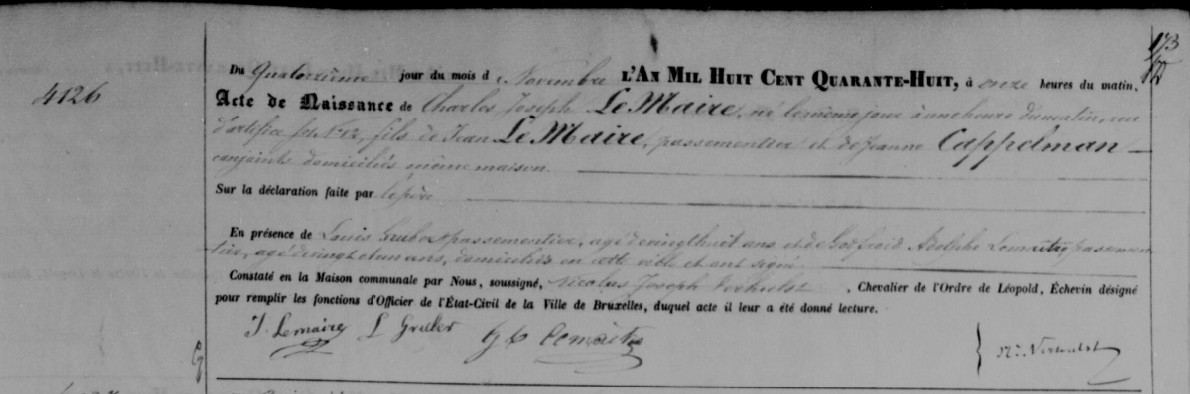 173
4126
Du Quatorzième jour du mois d e Novembre L'AN MIL HUIT CENT QUARANTE-HUIT, à onze heures du matin,
Acte de Naissance de Charles Joseph Le Maire, né le même jour à une heure du matin, rue
d'artifice N° 12, fils de Jean Le Maire, passementier et de Jeanne Cappelman
conjoints domiciliés même maison.
Sur la déclaration faite par le père
En présence de Louis Gruber passementier, agé de vingt huit ans et de Godfroid Adolphe Lemaitre passemen
tier, agé de vingt et un ans, domiciliés en cette ville et ont signé.
Constaté en la Maison communale par Nous, soussigné, Nicolas Joseph Verhulst, Chevalier de l'Ordre de Léopold, Échevin désigné
pour remplir les fonctions d'Officier de l'État-Civil de la Ville de Bruxelles, duquel acte il leur a été donné lecture.
J. Lemaire L Gruber Lemaitre
Verhulst